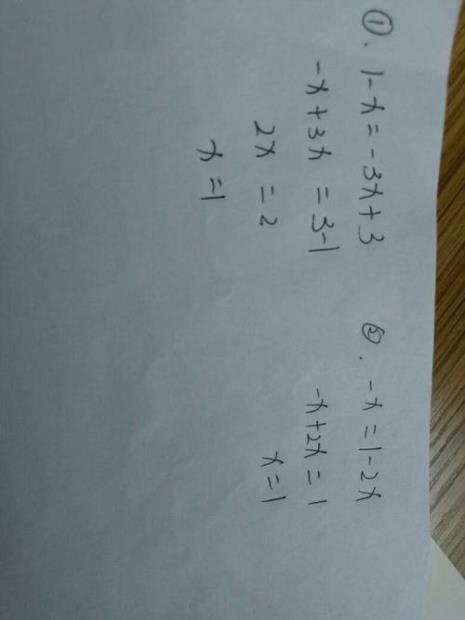 ①. 1-x=-3x+3
-x+3x=3-1
2x=2
x=1
②. -x=1-2x
-x+2x=1
x=1